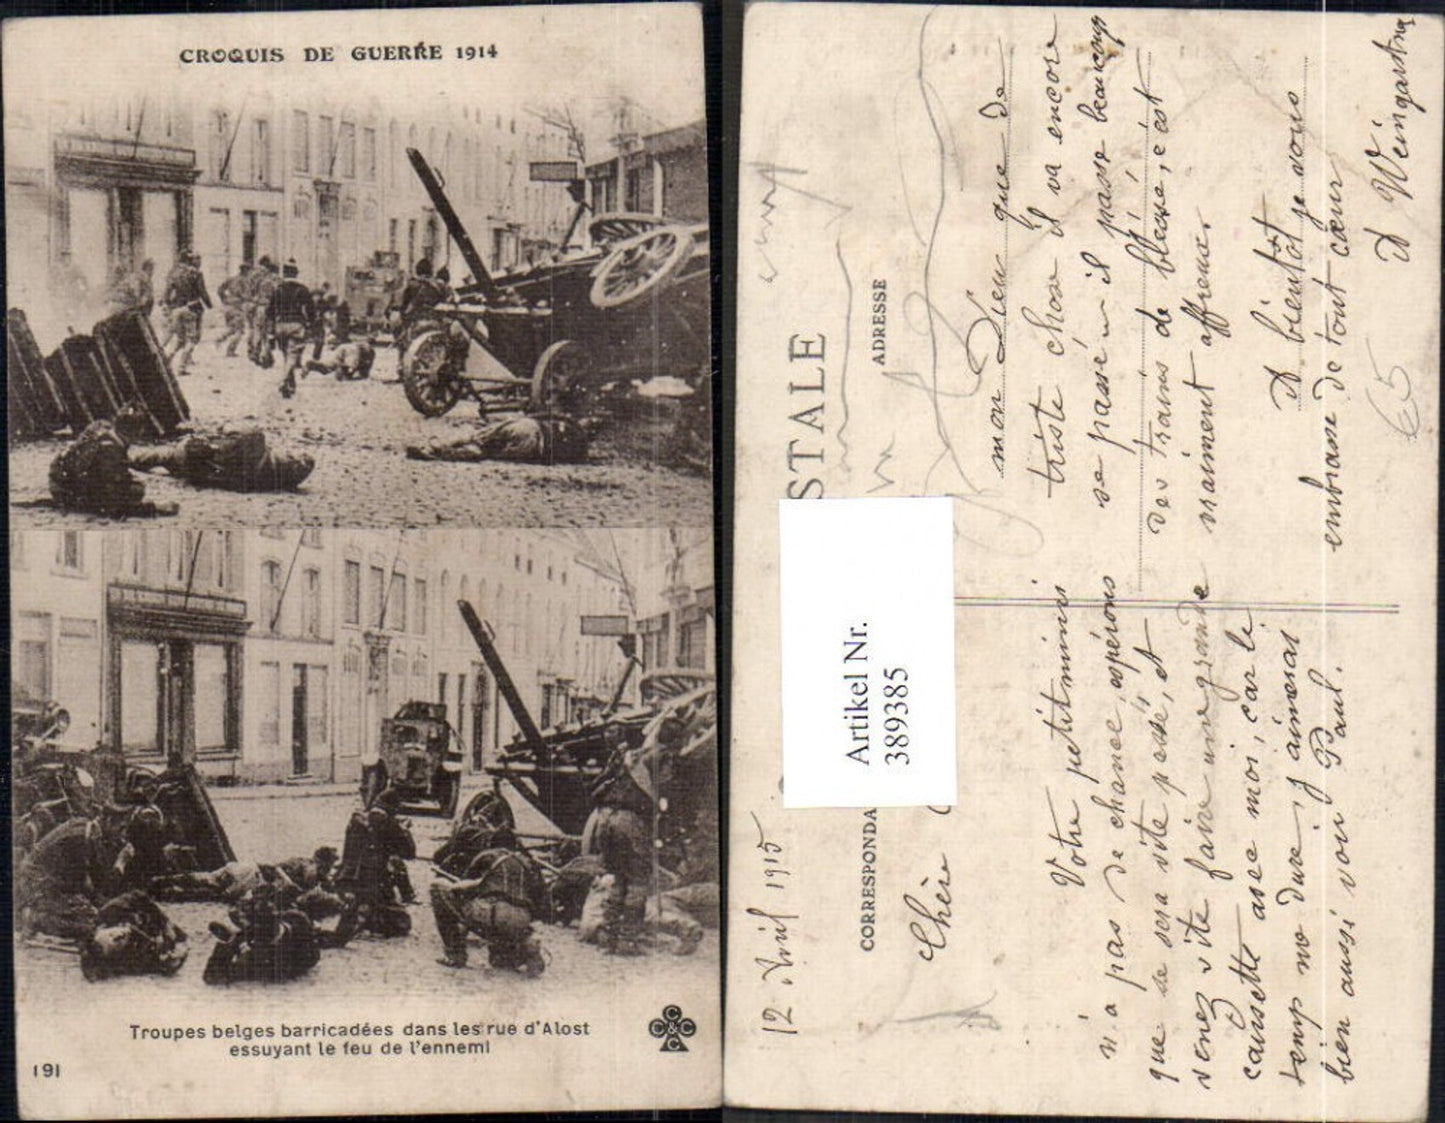 CROQUIS DE GUERRE 1914
Troupes belges barricadées dans les rue d'Alost
essuyant le feu de l'ennemi
191
C C & C C
STALE
CORRESPONDA
ADRESSE
Artikel Nr.
389385
12 Avril 1915
Chère
Votre petit mimi
n'a pas de chance, espérons
que se sera vite passé, et
venez vite faire une grande
causette avec moi, car le
temp me dure, j'aimerai
bien aussi voir Paul.
mon Dieu que de
triste chose il va encore
se passé il passe beaucoup
des trains de blessé, c'est
vraiment affreux.
A bientôt je vous
embrasse de tout cœur
A Weingartner
65